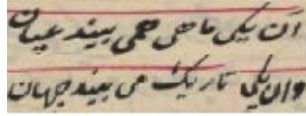 آن یکی ماهی همی بیند عیان
وان یکی تاریک می بیند جهان